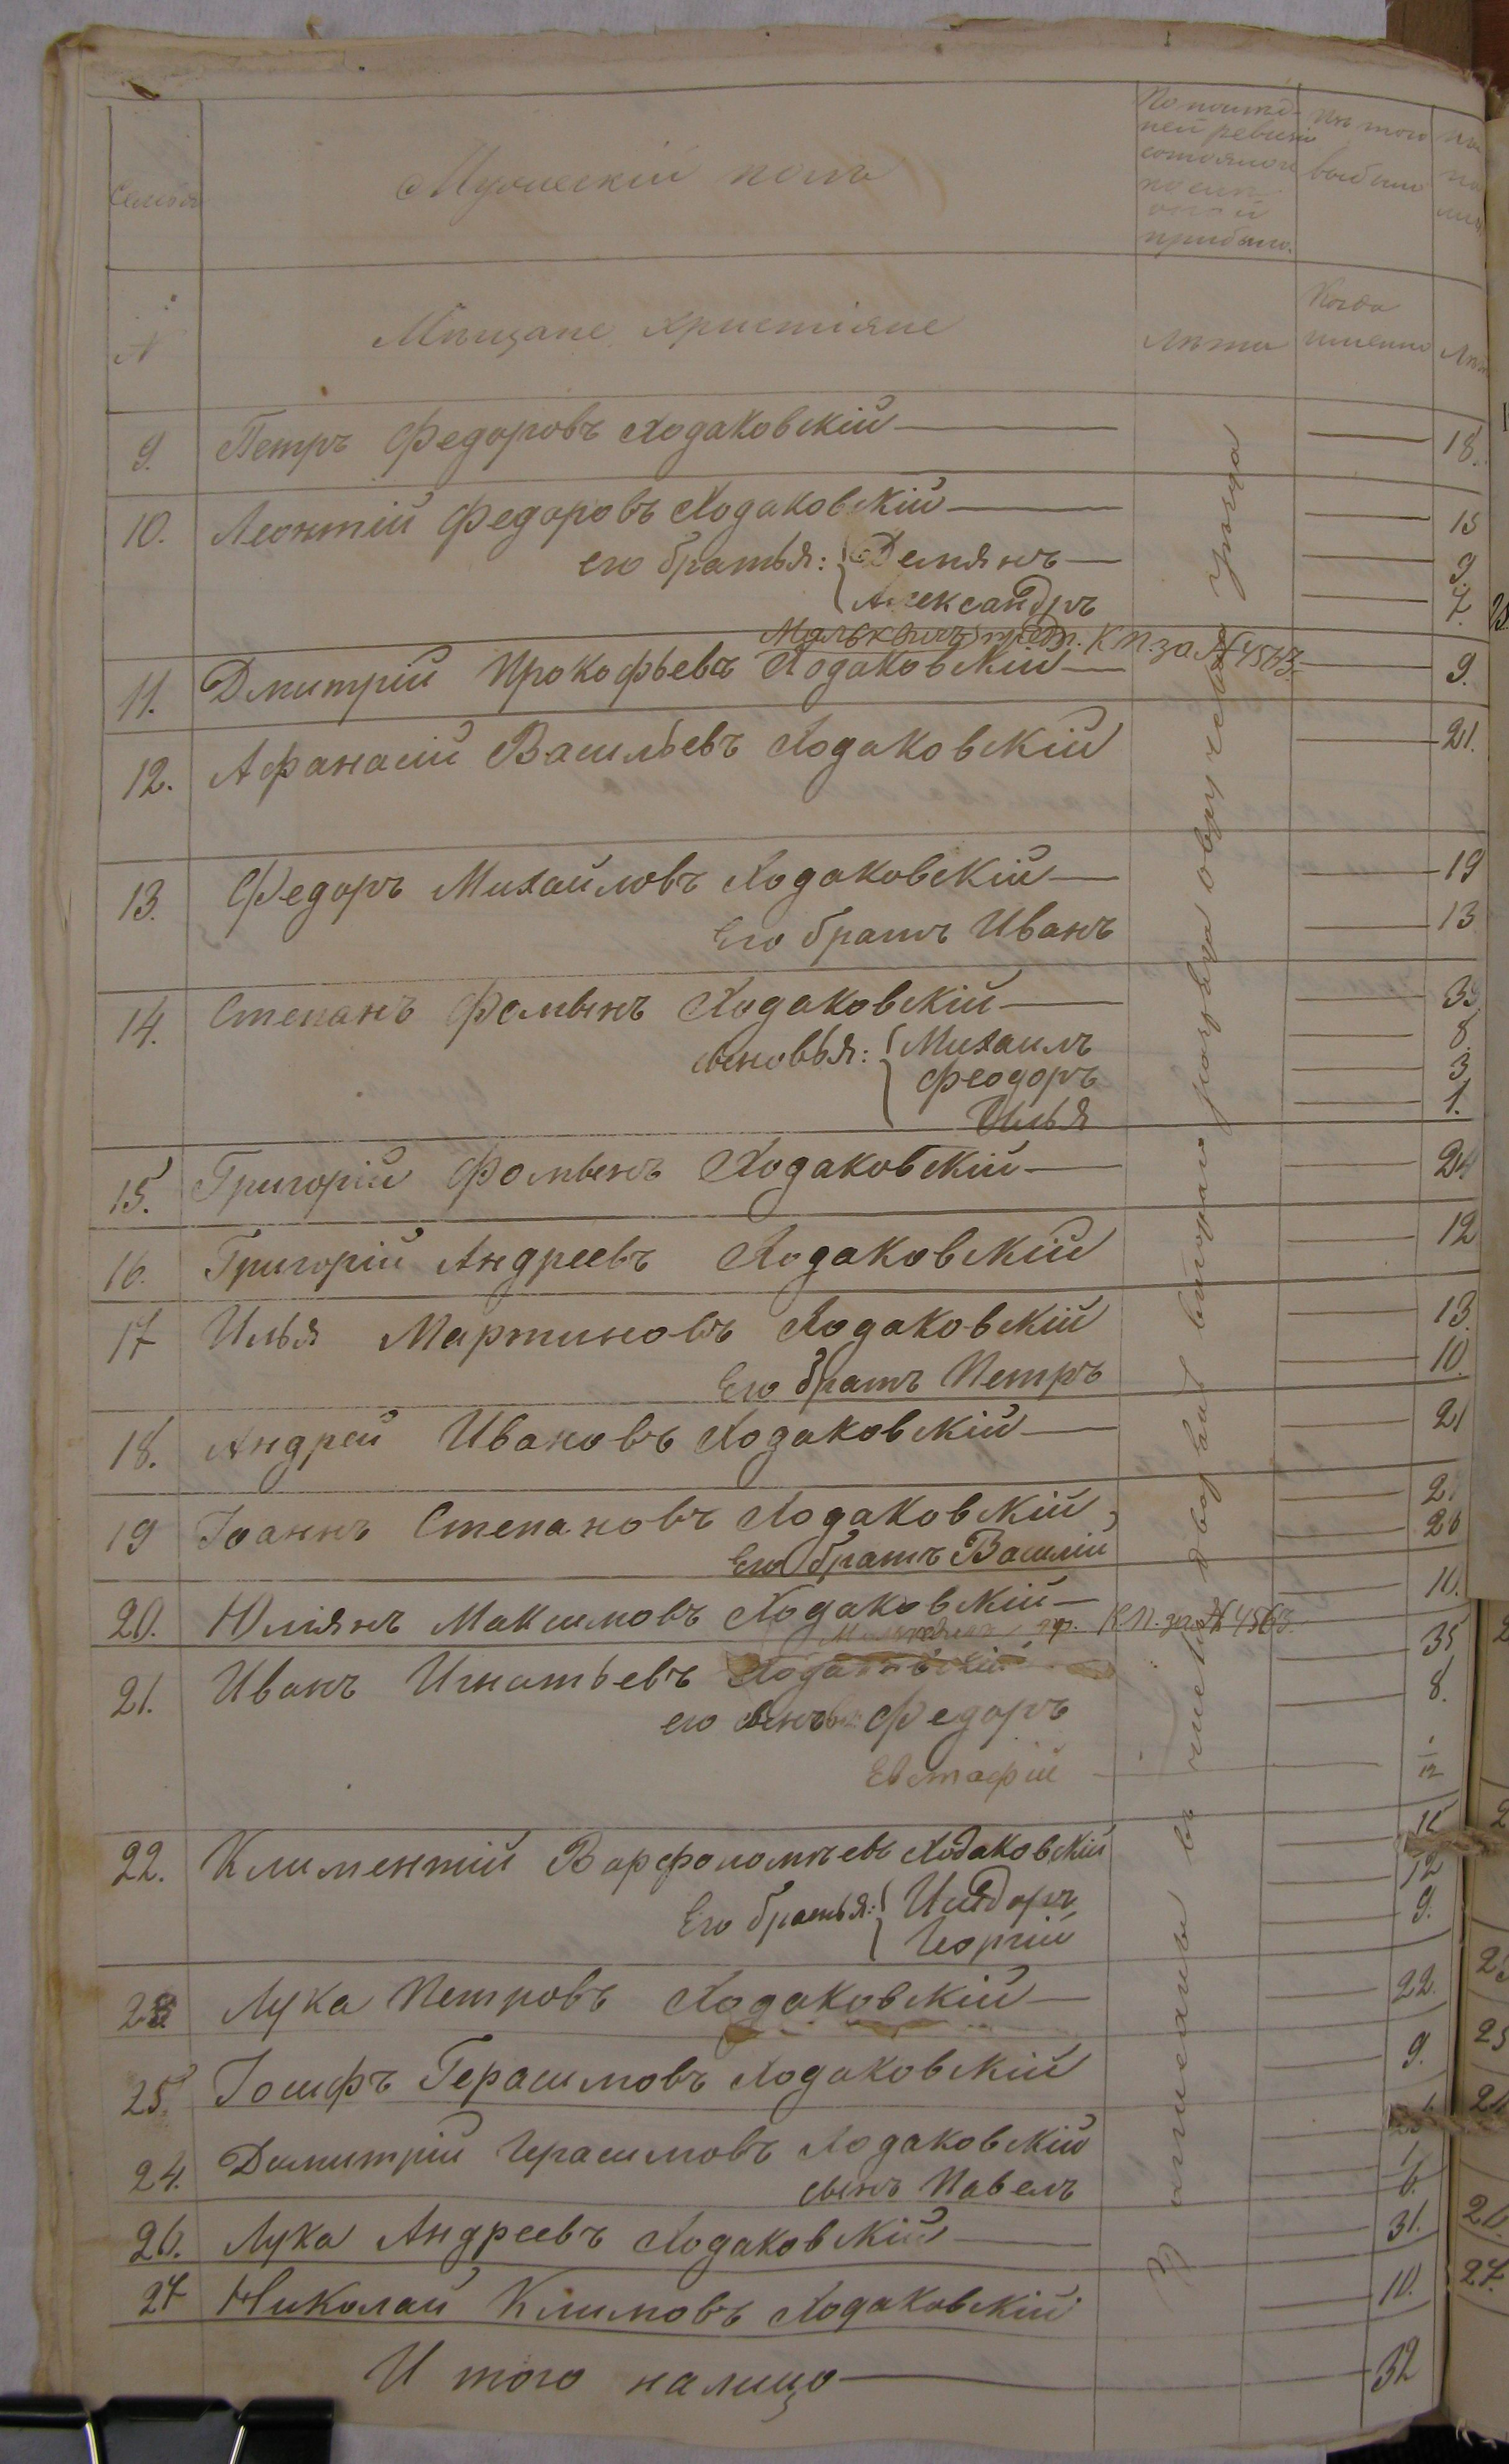 Семьи
Мужескій полъ
По послѣд-
ней ревизіи
состояло и
послѣ
оной
прибыло.
Изъ того
выбыло
№
Мѣщане Христіяне
Лѣта
Когда
именно
Лѣт
9. Петръ Федоровъ Ходаковскій 18.
10. Леонтій Федоровъ Ходаковскій 15
его братья: Демянъ 9.
Александръ 7.
К.П. за № 4563.
11. Дмитрій Прокофьевъ Ходаковскій 9.
12. Афанасій Васильевъ Ходаковскій 21.
13. Федоръ Михайловъ Ходаковскій 19
Его братъ Иванъ 13
14. Степанъ Фоминъ Ходаковскій
сыновья: Михаилъ 8.
Феодоръ 3
Илья 1.
15. Григорій Фоминъ Ходаковскій 24
16. Григорій Андреевъ Ходаковскій 12
17 Илья Мартиновъ Ходаковскій 13.
Его братъ Петръ 10.
18. Андрей Ивановъ Ходаковскій 21
19 Іоаннъ Степановъ Ходаковскій,
Его братъ Василій 20
20. Юліянъ Максимовъ Ходаковскій 10.
К.П. за № 4563.
21. Иванъ Игнатьевъ Ходаковскій 35
его сынъ Федоръ 8.
Евстафій 1/12
22. Климентій Варфоломѣевъ Ходаковскій
Его братья: Исидоръ 12
Георгій 9.
23 Лука Петровъ Ходаковскій 22.
25. Іосифъ Герасимовъ Ходаковскій 9.
24. Димитрій Герасимовъ Ходаковскій
сынъ Павелъ
26. Лука Андреевъ Ходаковскій 31.
27 Николай Климовъ Ходаковскій 10.
И того налицо 32
дворянъ втораго разряда овруческаго уѣзда